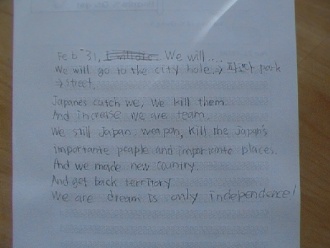 Feb "31, We will...
We will go to the city hole, park
street.
Japanes catch we, We kill them.
And increase we are team.
We still Japan, weapon, kill the Japan's
importante people and importante places.
And we made new country.
And get back territory
We are dream is only independence!